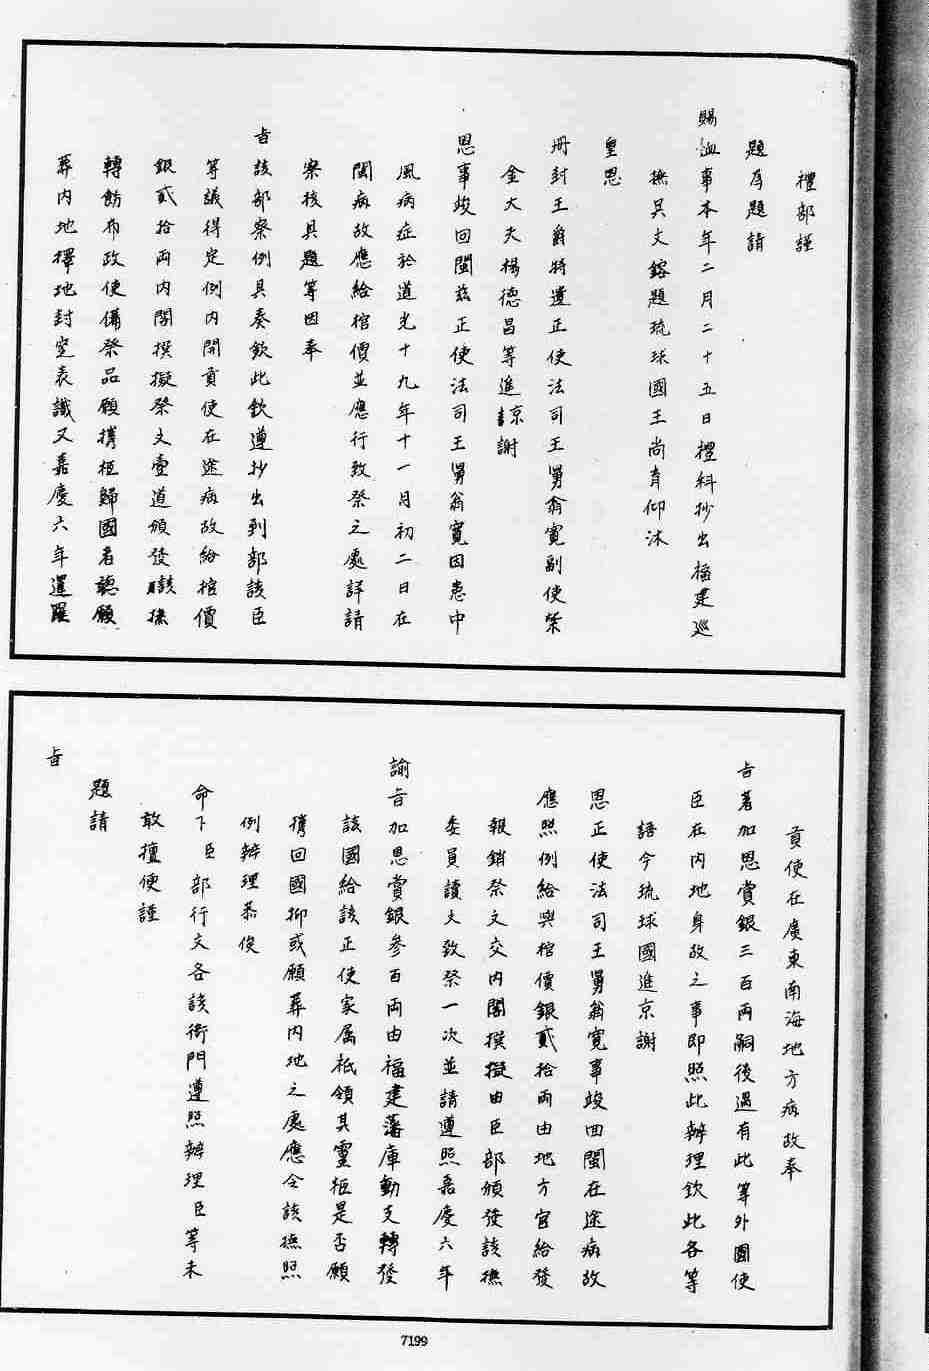 禮部謹
題為題請
賜䘏事本年二月二十五日禮科抄出福建巡
撫吳文鎔題琉球國王尚育仰沐
皇恩
冊封王爵特遣正使法司王舅翁寬副使紫
金大夫楊德昌等進京謝
恩事竣回閩茲正使法司王舅翁寬因患中
風病症於道光十九年十一月初二日在
閩病故應給棺價並應行致祭之處詳請
察核具題等因奉
旨該部察例具奏欽此欽遵抄出到部該臣
等議得定例內開貢使在途病故給棺價
銀貳拾兩內閣撰擬祭文壹道頒發該撫
轉飭布政使備祭品願攜柩歸國者聽願
葬內地擇地封窆表識又嘉慶六年暹羅
貢使在廣東南海地方病故奉
旨著加恩賞銀三百兩嗣後遇有此等外國使
臣在內地身故之事即照此辦理欽此各等
語今琉球國進京謝
恩正使法司王舅翁寬事竣回閩在途病故
應照例給與棺價銀貳拾兩由地方官給發
報銷祭文交內閣撰擬由臣部頒發該撫
委員讀文致祭一次並請遵照嘉慶六年
諭旨加恩賞銀參百兩由福建藩庫動支轉發
該國給該正使家屬祗領其靈柩是否願
攜回國抑或願葬內地之處應令該撫照
例辦理恭俟
命下臣部行文各該衙門遵照辦理臣等未
敢擅便謹
題請
旨
7199